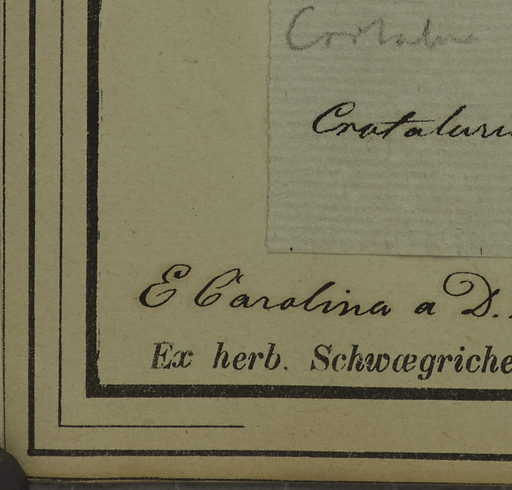 Crotalu
Crotaluru
E Carolina a D.
Ex herb. Schwœgriche